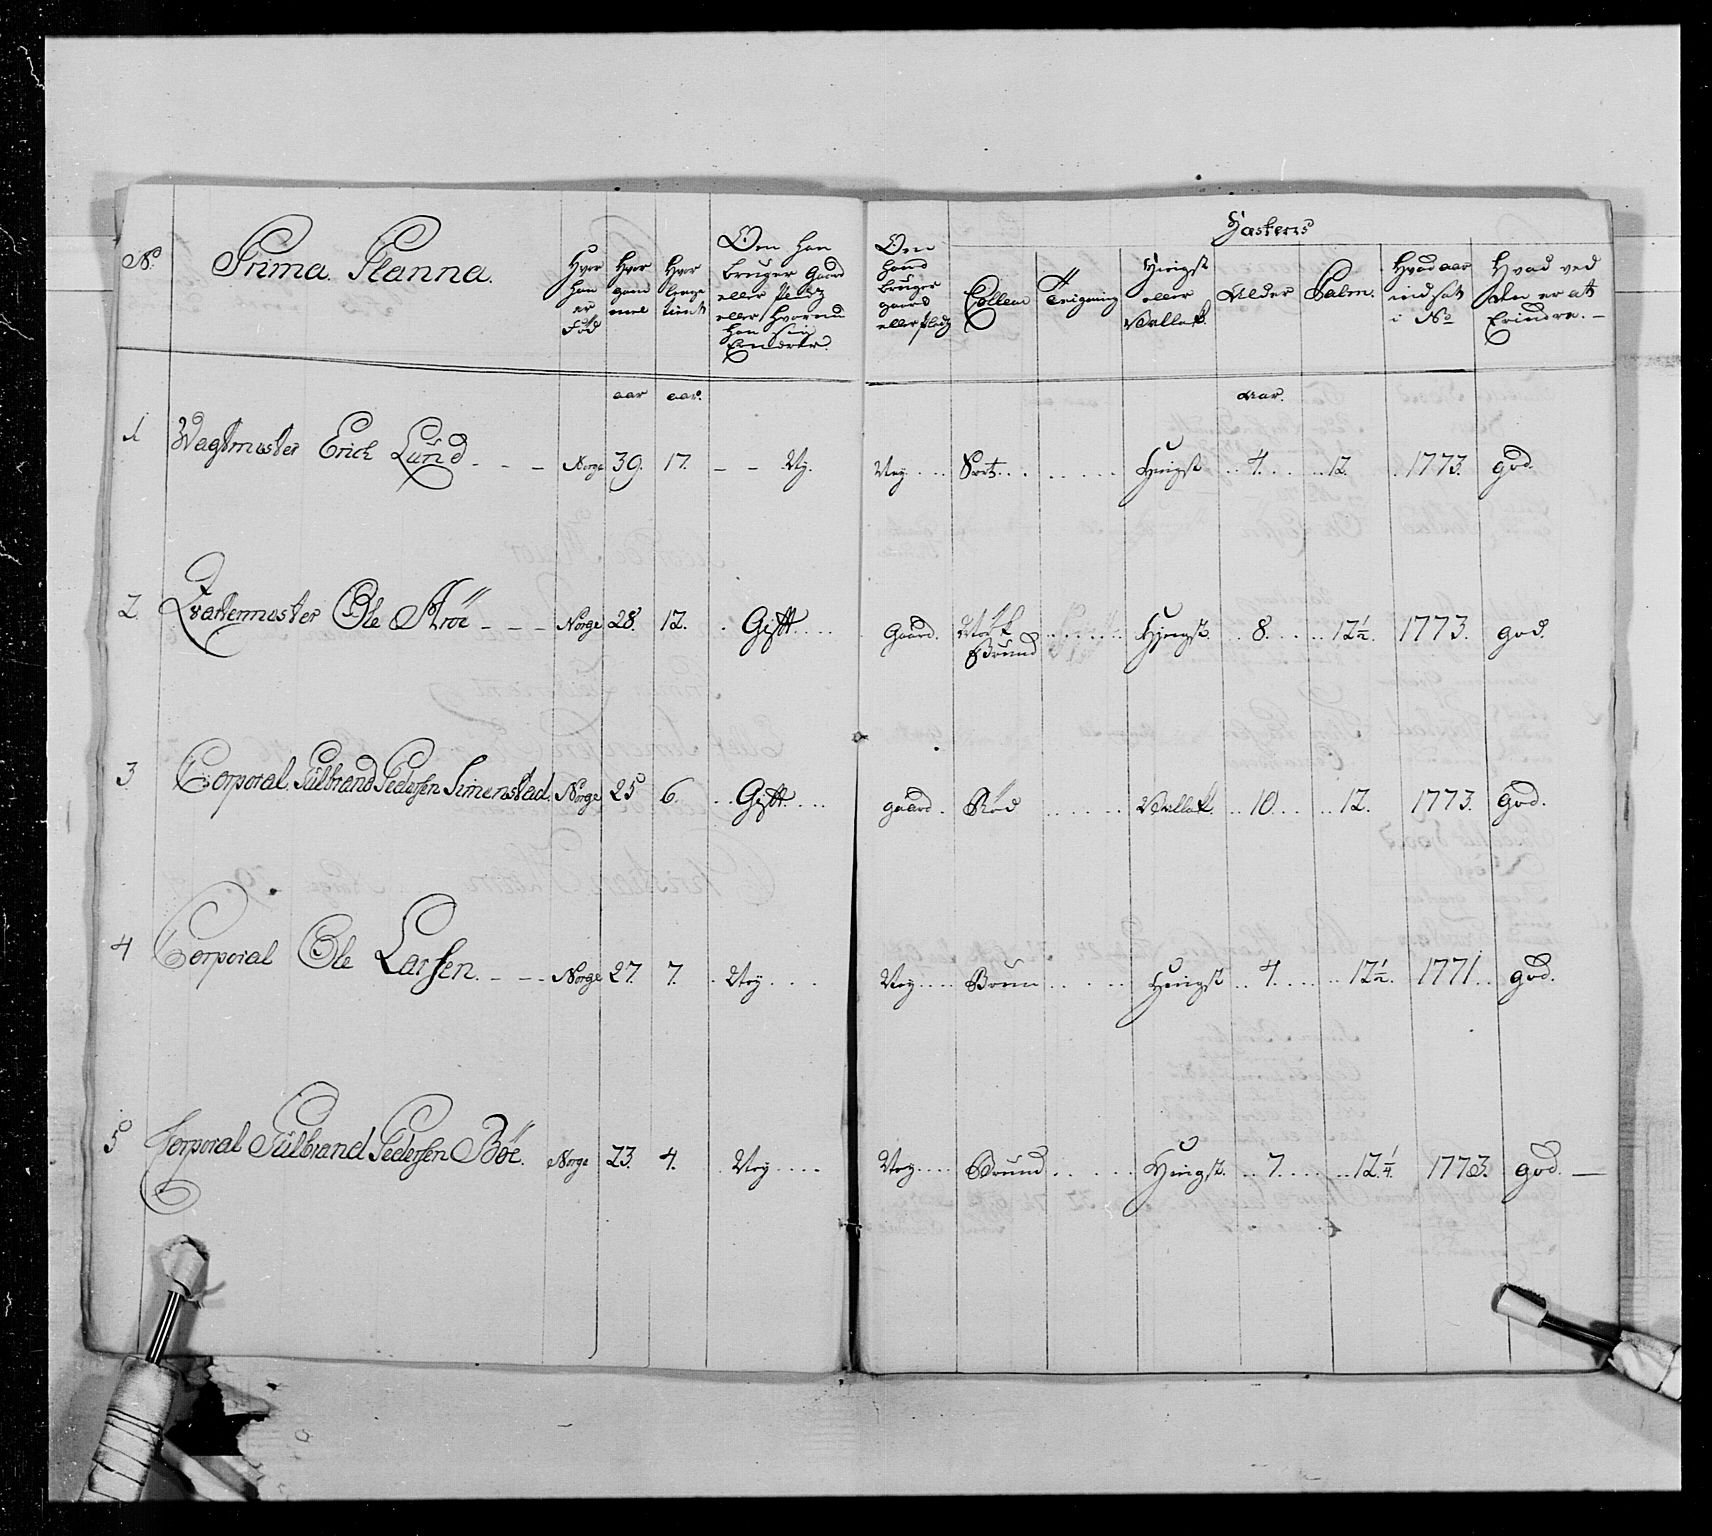 No. Prima Planna. Hvor han er Föd Hvor gam mel Hvor lenge tient Om han bruger Gaard eller Pladz eller hvormed han sig Ernærer. Om hand bruger gaard eller Pladz
Hæstens
Collem Teigning Hingst eller Vallak. Alder Palm. Hvad aar indsat i No Hvad ved den er at Erindre. –
aar aar. Aar.
1 Wagtmester Erich Lund - - - Norge 39. 17. - - Ng. Ney ... Sort ... Hingst .. 4 .... 12. . 1773. god.
2. Qvartermester Ole Ströe - - - Norge 28. 12. . Gift .... Gaard. Mörk Brund ..... Hingst. .. 8. .... 12½. 1773. god.
3. Corporal Gulbrand Pedersen Simenstad. Norge 25 6. .. Gift ... gaard. Röd ..... Vallak. .. 10. .... 12. 1773. god.
4 Corporal Ole Larsen. - - - Norge 27. 7. . Ney .... Ney .... Brun ..... Hingst .. 4. .... 12½. 1771. .. god.
5 Corporal Gulbrand Pedersen Böe. Norge 23. 4. . Ney .... Ney .... Brund ..... Hingst. .. 7. .... 12¼. 1773. god. —